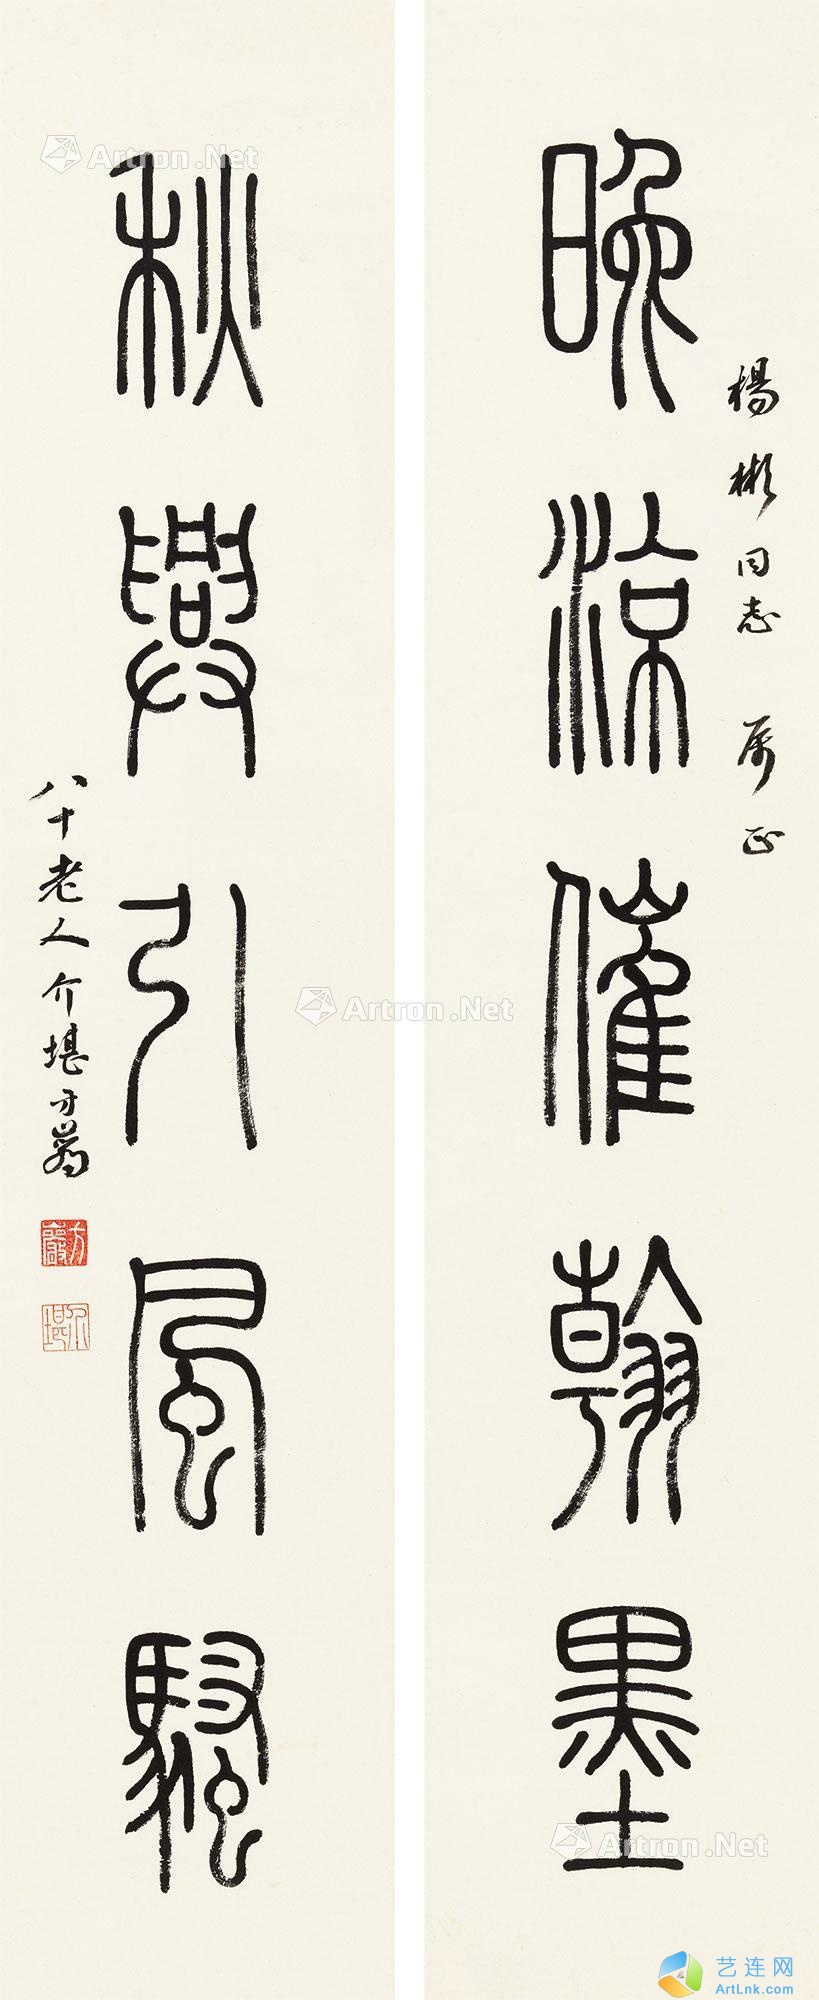 晚涼催翰墨
楊彬同志 属正
秋興引風騷
八十老人介堪方巖
方巖
介堪
Artron.Net
Artron.Net
Artron.Net
艺连网
ArtLnk.com